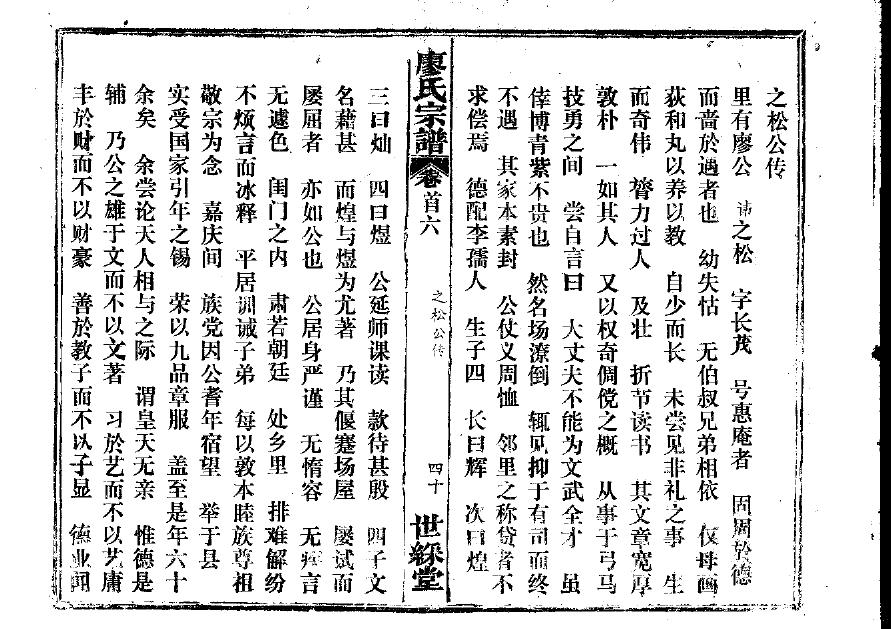 之松公传
里有廖公 讳之松 字长茂 号惠庵者 固周於德
而啬於遇者也 幼失怙 无伯叔兄弟相依 仅母画
荻和丸以养以教 自少而长 未尝见非礼之事 生
而奇伟 膂力过人 及壮 折节读书 其文章宽厚
敦朴 一如其人 又以权奇倜傥之概 从事于弓马
技勇之间 尝自言曰 大丈夫不能为文武全才 虽
倖博青紫不贵也 然名场潦倒 辄见抑于有司而终
不遇 其家本素封 公仗义周恤 邻里之称贷者不
求偿焉 德配李孺人 生子四 长曰辉 次曰煌
廖氏宗譜 卷首六 之松公传 四十 世綵堂
三曰灿 四曰煜 公延师课读 款待甚殷 四子文
名藉甚 而煌与煜为尤著 乃其偃蹇场屋 屡试而
屡屈者 亦如公也 公居身严谨 无惰容 无疾言
无遽色 闺门之内 肃若朝廷 处乡里 排难解纷
不烦言而冰释 平居训诫子弟 每以敦本睦族尊祖
敬宗为念 嘉庆间 族党因公耆年宿望 举于县
实受国家引年之锡 荣以九品章服 盖至是年六十
余矣 余尝论天人相与之际 谓皇天无亲 惟德是
辅 乃公之雄于文而不以文著 习於艺而不以艺庸
丰於财而不以财豪 善於教子而不以子显 德业闻